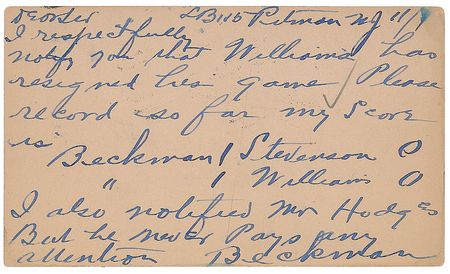 Dear Sir LB 115 Pitman NJ 11/
I respectfully
notify you that Williams has
resigned his game Please
record so far my Score
is
Beckman 1 Stevenson 0
" 1 Williams 0
I also notified Mr Hodges
But he never Pays any
attention Beckman